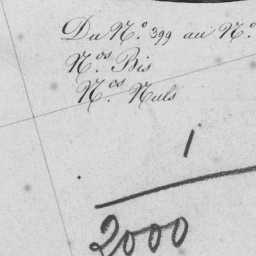 Du N.º 399 au N.º
N.ºˢ Bis
N.ºˢ Nuls
1
2000